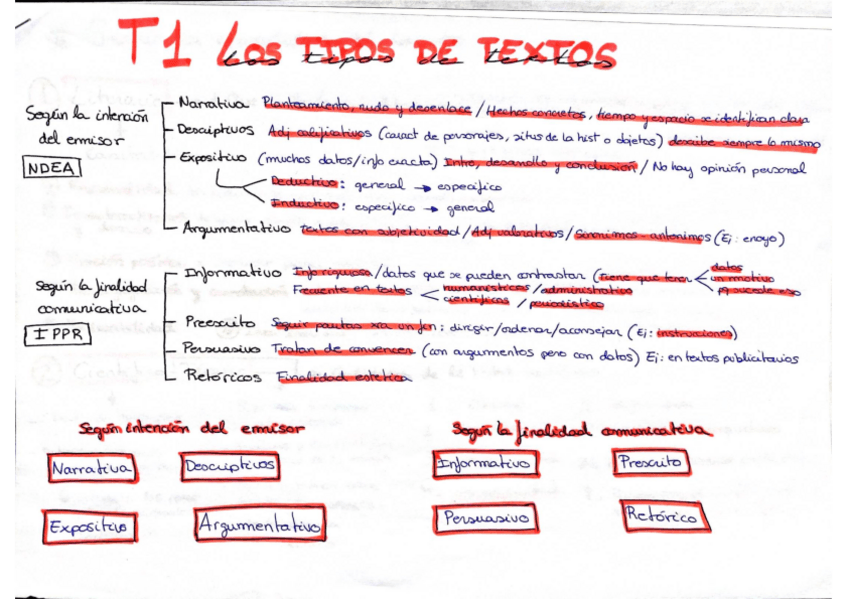 T1 Los TIPOS DE TEXTOS
Según la intención del emisor
NDEA
Narrativa Planteamiento, nudo y desenlace / Hechos concretos, tiempo y espacio se identifican clara
Descriptivos Adj calificativos (caract de personajes, situs de la hist o objetos) describe siempre lo mismo
Expositivo (muchos datos/info exacta) Intro, desarrollo y conclusión / No hay opinión personal
Deductivo: general → específico
Inductivo: específico → general
Argumentativo textos con subjetividad / Adj valorativos / Sinonimos antonimos (Ej: enayo)
Según la finalidad comunicativa
IPPR
Informativo Info rigurosa / datos que se pueden contrastar (tiene que tener datos
un motivo
pq sucede eso
Frecuente en textos humanísticos / administrativo
científicos / periodístico
Preescrito Seguir pautas xra un fin: dirigir/ordenar/aconsejar (Ej: instrucciones)
Persuasivo Tratan de convencer (con argumentos pero con datos) Ej: en textos publicitarios
Retóricos Finalidad estética
Según intención del emisor
Según la finalidad comunicativa
Narrativa Descriptivos
Informativo Prescrito
Expositivo Argumentativo
Persuasivo Retórico